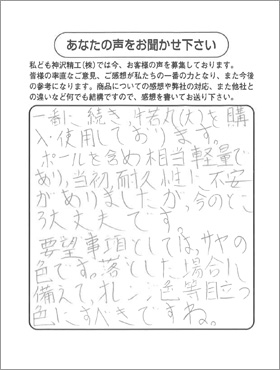 あなたの声をお聞かせ下さい
私ども神沢精工(株)では今、お客様の声を募集しております。
皆様の率直なご意見、ご感想が私たちの一番の力となり、また今後
の参考になります。商品についての感想や弊社の対応、また他社と
の違いなど何でも結構ですので、感想を書いてお送り下さい。
に続き、牛若丸(大)を購
入・使用しております。
ポールを含め相当軽量で
あり、当初、耐久性に不安
がありましたが、今のとこ
ろ大丈夫です。
要望事項としては、サヤの
色です。落とした場合に
備えて、オレンジ色等目立つ
色にすべきですね。